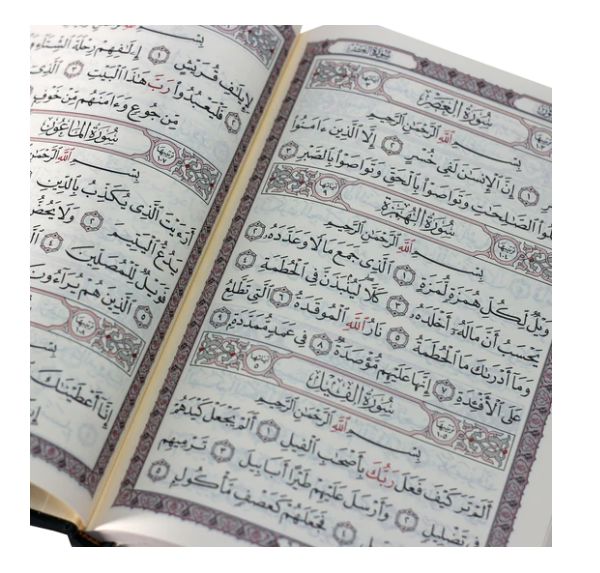 سُورَةُ العَصْرِ
سُورَةُ الْعَصْرِ آياتها ٣
بِسْمِ ٱللَّهِ ٱلرَّحْمَٰنِ ٱلرَّحِيمِ
١ إِنَّ ٱلْإِنسَٰنَ لَفِى خُسْرٍ ٢ إِلَّا ٱلَّذِينَ ءَامَنُوا۟
ٱلصَّٰلِحَٰتِ وَتَوَاصَوْا۟ بِٱلْحَقِّ وَتَوَاصَوْا۟ بِٱلصَّبْرِ ٣
ترتيبها ١٠٤ سُورَةُ الْهُمَزَةِ آياتها ٩
بِسْمِ ٱللَّهِ ٱلرَّحْمَٰنِ ٱلرَّحِيمِ
وَيْلٌ لِّكُلِّ هُمَزَةٍ لُّمَزَةٍ ١ ٱلَّذِى جَمَعَ مَالًا وَعَدَّدَهُۥ ٢
يَحْسَبُ أَنَّ مَالَهُۥٓ أَخْلَدَهُۥ ٣ كَلَّا لَيُنۢبَذَنَّ فِى ٱلْحُطَمَةِ ٤
وَمَآ أَدْرَىٰكَ مَا ٱلْحُطَمَةُ ٥ نَارُ ٱللَّهِ ٱلْمُوقَدَةُ ٦ ٱلَّتِى تَطَّلِعُ
عَلَى ٱلْأَفْـِٔدَةِ ٧ إِنَّهَا عَلَيْهِم مُّؤْصَدَةٌ ٨ فِى عَمَدٍ مُّمَدَّدَةٍۭ ٩
ترتيبها ١٠٥ سُورَةُ الْفِيلِ آياتها ٥
بِسْمِ ٱللَّهِ ٱلرَّحْمَٰنِ ٱلرَّحِيمِ
أَلَمْ تَرَ كَيْفَ فَعَلَ رَبُّكَ بِأَصْحَٰبِ ٱلْفِيلِ ١ أَلَمْ يَجْعَلْ كَيْدَهُمْ
فِى تَضْلِيلٍ ٢ وَأَرْسَلَ عَلَيْهِمْ طَيْرًا أَبَابِيلَ ٣ تَرْمِيهِم
٤ فَجَعَلَهُمْ كَعَصْفٍ مَّأْكُولٍۭ ٥
بِسْمِ
لِإِيلَٰفِ قُرَيْشٍ ١ إِۦلَٰفِهِمْ رِحْلَةَ ٱلشِّتَآءِ
٢ فَلْيَعْبُدُوا۟ رَبَّ هَٰذَا ٱلْبَيْتِ ٣ ٱلَّذِىٓ
مِّن جُوعٍ وَءَامَنَهُم مِّنْ خَوْفٍۭ
ترتيبها ١٠٧ سُورَةُ الْمَاعُونِ
بِسْمِ ٱللَّهِ ٱلرَّحْمَٰنِ
أَرَءَيْتَ ٱلَّذِى يُكَذِّبُ بِٱلدِّينِ
يَدُعُّ ٱلْيَتِيمَ ٢ وَلَا يَحُضُّ
فَوَيْلٌ لِّلْمُصَلِّينَ ٤
٥ ٱلَّذِينَ هُمْ يُرَآءُونَ
بِسْمِ
إِنَّآ أَعْطَيْنَٰكَ